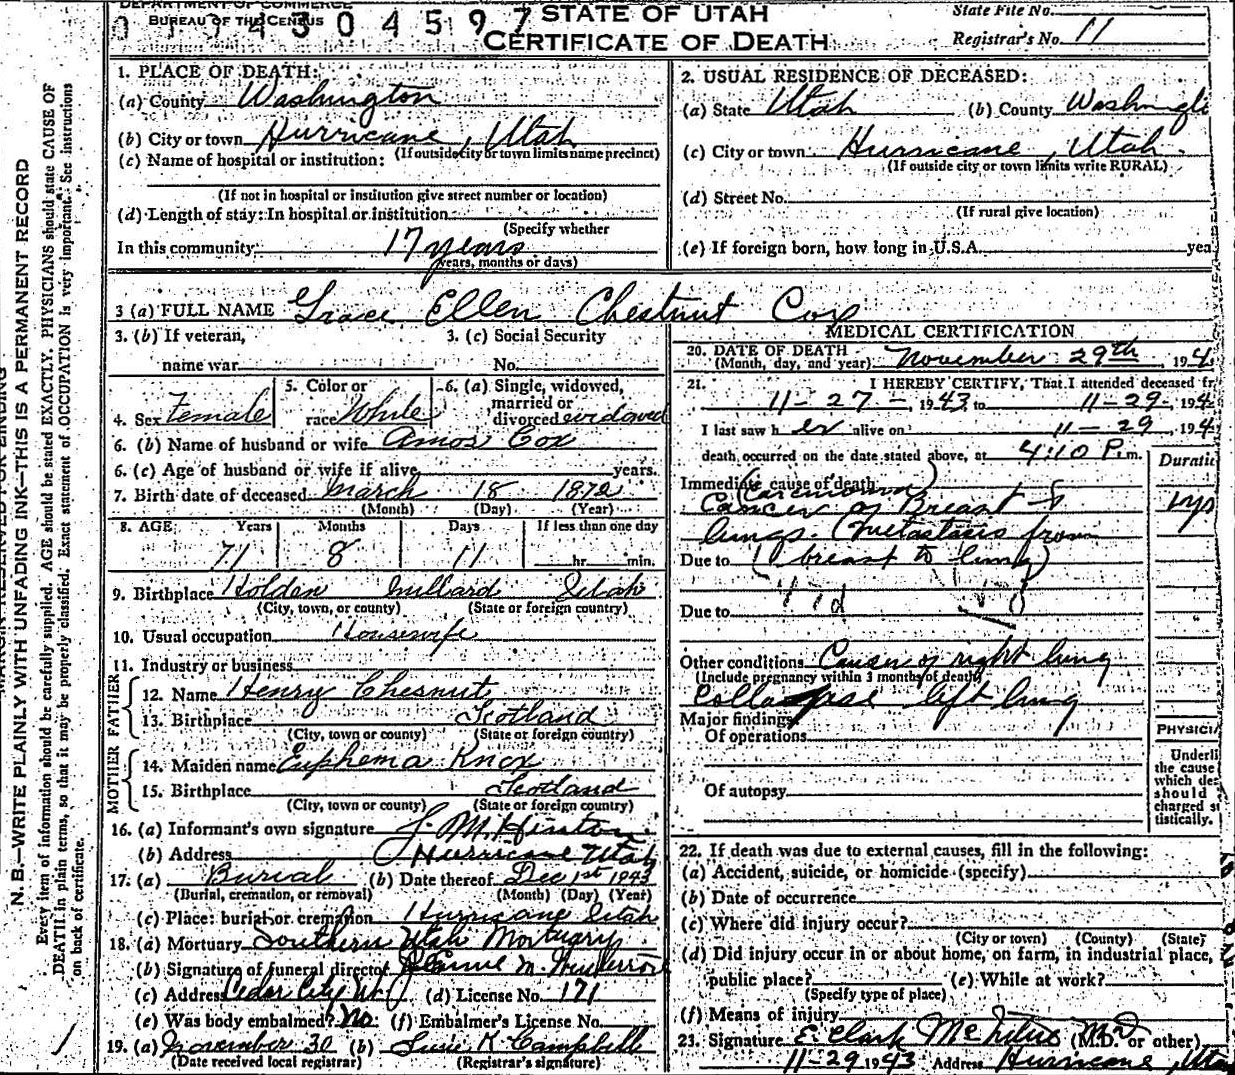 DEPARTMENT OF COMMERCE
BUREAU OF THE CENSUS
STATE OF UTAH
CERTIFICATE OF DEATH
State File No.
Registrar's No. 11
N. B.—WRITE PLAINLY WITH UNFADING INK—THIS IS A PERMANENT RECORD
Every item of information should be carefully supplied. AGE should be stated EXACTLY. PHYSICIANS should state CAUSE OF
DEATH in plain terms, so that it may be properly classified. Exact statement of OCCUPATION is very important. See instructions
on back of certificate.
1. PLACE OF DEATH:
(a) County Washington
(b) City or town Hurricane, Utah
(If outside city or town limits name precinct)
(c) Name of hospital or institution:
(If not in hospital or institution give street number or location)
(d) Length of stay: In hospital or institution
(Specify whether
In this community 17 years
years, months or days)
2. USUAL RESIDENCE OF DECEASED:
(a) State Utah (b) County Washingto
(c) City or town Hurricane, Utah.
(If outside city or town limits write RURAL)
(d) Street No.
(If rural give location)
(e) If foreign born, how long in U.S.A. yea
3 (a) FULL NAME Grace Ellen Chestnut Cox
3. (b) If veteran,
name war
3. (c) Social Security
No.
4. Sex Female
5. Color or
race White
6. (a) Single, widowed,
married or
divorced widowed
6. (b) Name of husband or wife Amos Cox
6. (c) Age of husband or wife if alive years.
7. Birth date of deceased March 18 1872
(Month) (Day) (Year)
8. AGE Years Months Days If less than one day
71 8 11 hr. min.
9. Birthplace Holden Millard Utah
(City, town, or county) (State or foreign country)
10. Usual occupation Housewife
11. Industry or business
FATHER
12. Name Henry Chesnut
13. Birthplace Scotland
(City, town or county) (State or foreign country)
MOTHER
14. Maiden name Euphema Knox
15. Birthplace Scotland
(City, town or county) (State or foreign country)
16. (a) Informant's own signature J. M. Hinton
(b) Address Hurricane Utah
17. (a) Burial (b) Date thereof Dec 1st 1943
(Burial, cremation, or removal) (Month) (Day) (Year)
(c) Place: burial or cremation Hurricane Utah
18. (a) Mortuary Southern Utah Mortuary
(b) Signature of funeral director M.
(c) Address Cedar City Ut (d) License No. 171
(e) Was body embalmed? No (f) Embalmer's License No.
19. (a) November 30 (b) Susie K Campbell
(Date received local registrar) (Registrar's signature)
MEDICAL CERTIFICATION
20. DATE OF DEATH
(Month, day, and year) November 29th, 194
21. I HEREBY CERTIFY, That I attended deceased fr
11-27-, 1943 to 11-29-, 194
I last saw her alive on 11-29, 194
death occurred on the date stated above, at 4:10 P.m.
Duratio
Immediate cause of death
(Carcinoma)
Cancer of Breast &
lungs. (Metastasis from
Due to breast to lung)
Due to
Other conditions Cancer of right lung
(Include pregnancy within 3 months of death)
Collapse left lung
Major findings
Of operations
Of autopsy
PHYSICIA
Underli
the cause
which des
should
charged st
tistically.
22. If death was due to external causes, fill in the following:
(a) Accident, suicide, or homicide (specify)
(b) Date of occurrence
(c) Where did injury occur?
(City or town) (County) (State)
(d) Did injury occur in or about home, on farm, in industrial place,
public place? (e) While at work?
(Specify type of place)
(f) Means of injury
23. Signature E. Clark (M.D. or other)
11-29 1943 Address Hurricane, Uta